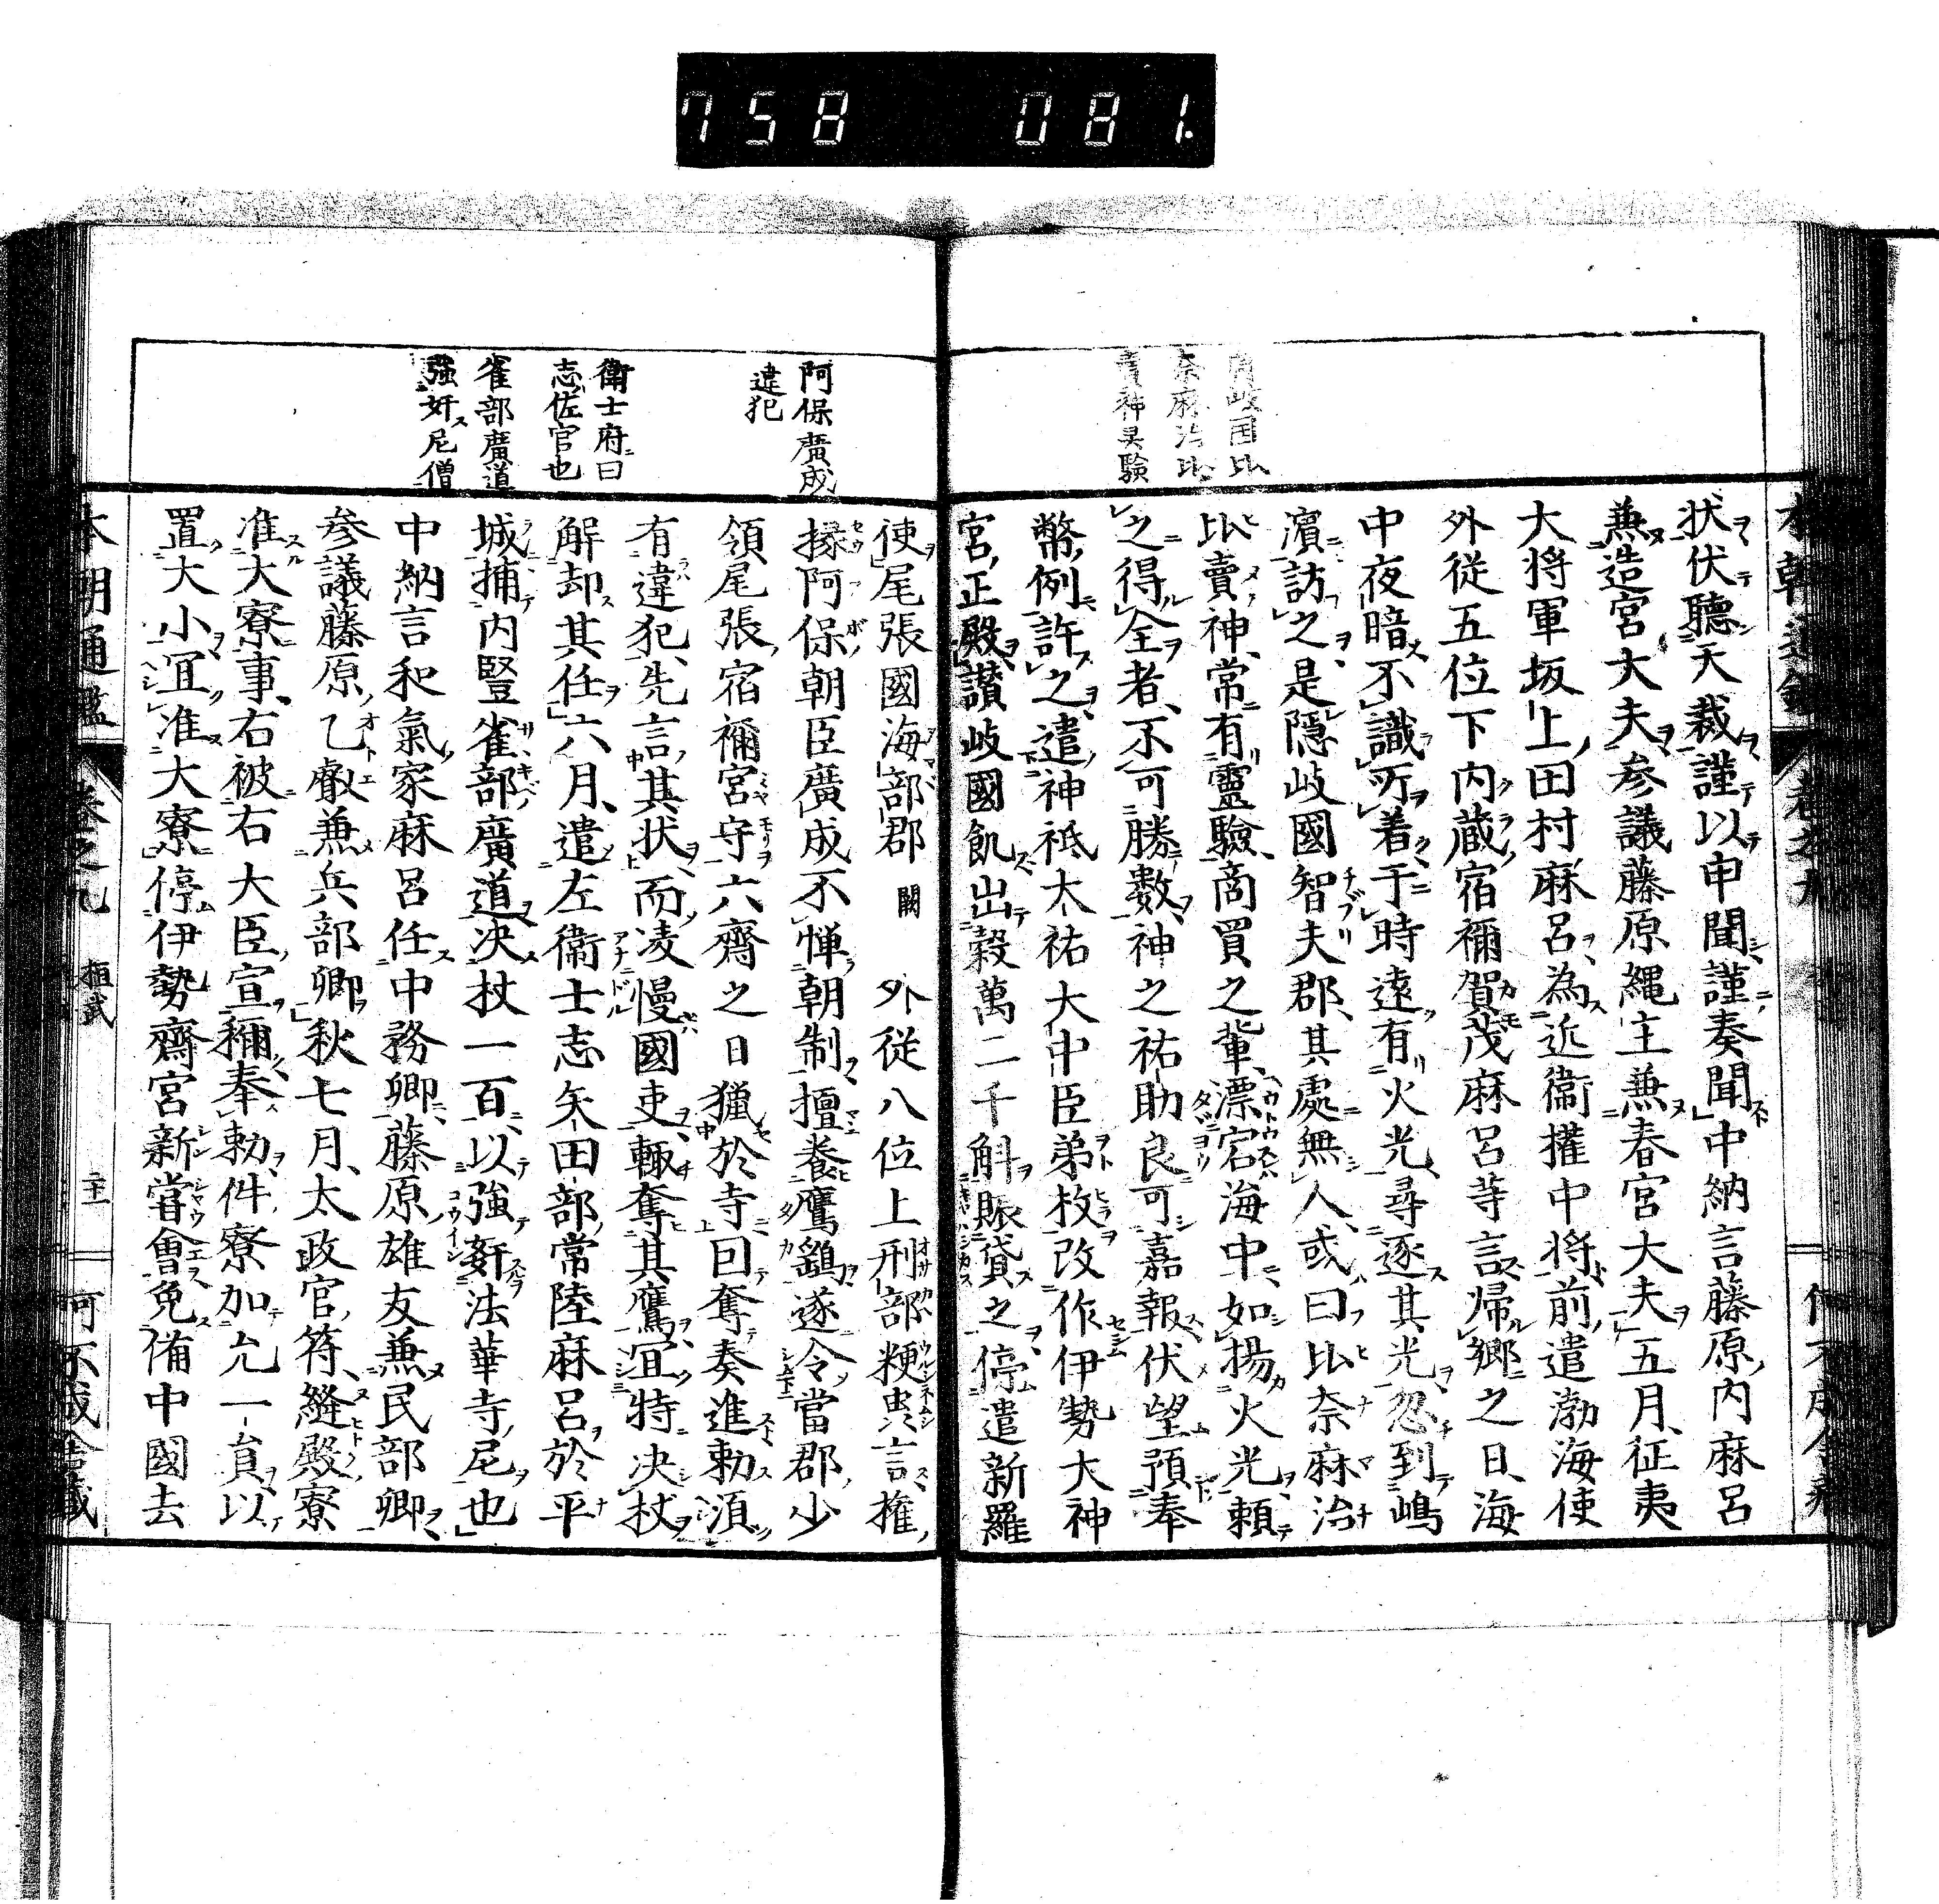 758 081
隠岐国比
奈麻治比
賣神灵驗
状伏聽天裁謹以申聞謹奏聞中納言藤原内麻呂
兼造宮大夫参議藤原縄主兼春宮大夫五月征夷
大将軍坂上田村麻呂為近衞權中将前遣渤海使
外従五位下内蔵宿禰賀茂麻呂等言歸郷之日海
中夜暗不識所着于時遠有火光尋逐其光忽到嶋
濱訪之是隱岐國智夫郡其處無人或曰比奈麻治
比賣神常有靈驗商買之輩漂宕海中如揚火光頼
之得全者不可勝數神之祐助良可嘉報伏望預奉
幣例許之遣神祇太祐大中臣弟枚改作伊勢大神
宮正殿讃岐國飢出穀萬二千斛賑貸之停遣新羅
阿保廣成
違犯
衞士府曰
志佐官也
雀部廣道
強奸尼僧
使尾張國海部郡 闕 外従八位上刑部粳虫言權
掾阿保朝臣廣成不憚朝制擅養鷹鷂遂令當郡少
領尾張宿禰宮守六齋之日獵於寺囙奪奏進勅須
有違犯先言其状而凌慢國吏輙奪其鷹冝特决杖
解却其任六月遣左衞士志矢田部常陸麻呂於平
城捕内豎雀部廣道决杖一百以強姧法華寺尼也
中納言和氣家麻呂任中務卿藤原雄友兼民部卿
参議藤原乙叡兼兵部卿秋七月太政官符縫殿寮
准大寮事右被右大臣宣稱奉勅件寮加允一員以
置大小冝准大寮停伊勢齋宮新嘗會免備中國去
本朝通鑑 卷之九 桓武